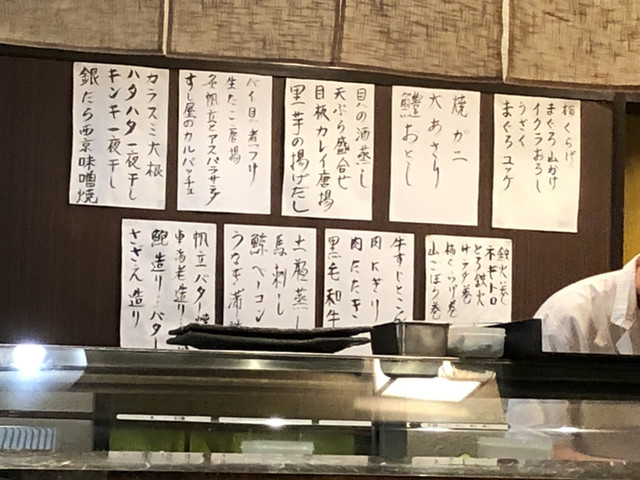 梅くらげ
まぐろ山かけ
イクラおろし
うざく
まぐろユッケ
焼ガニ
大あさり
鱧おとし
貝の酒蒸し
天ぷら盛合せ
目板カレイ唐揚
里芋の揚げだし
バイ貝煮つけ
生たこ唐揚
炙帆立とアスパラサラダ
すし屋のカルパッチョ
カラスミ大根
ハタハタ一夜干し
キンキ一夜干し
銀だら西京味噌焼
鉄火巻
ネギトロ
とろ鉄火
サラダ巻
梅くらげ巻
山ごぼう巻
牛すじところ
肉にぎり
肉たたき
黒毛和牛
土瓶蒸し
馬刺し
鯨ベーコン
うなぎ蒲焼
帆立バター焼
車海老造り
鮑造り バター
さざえ造り